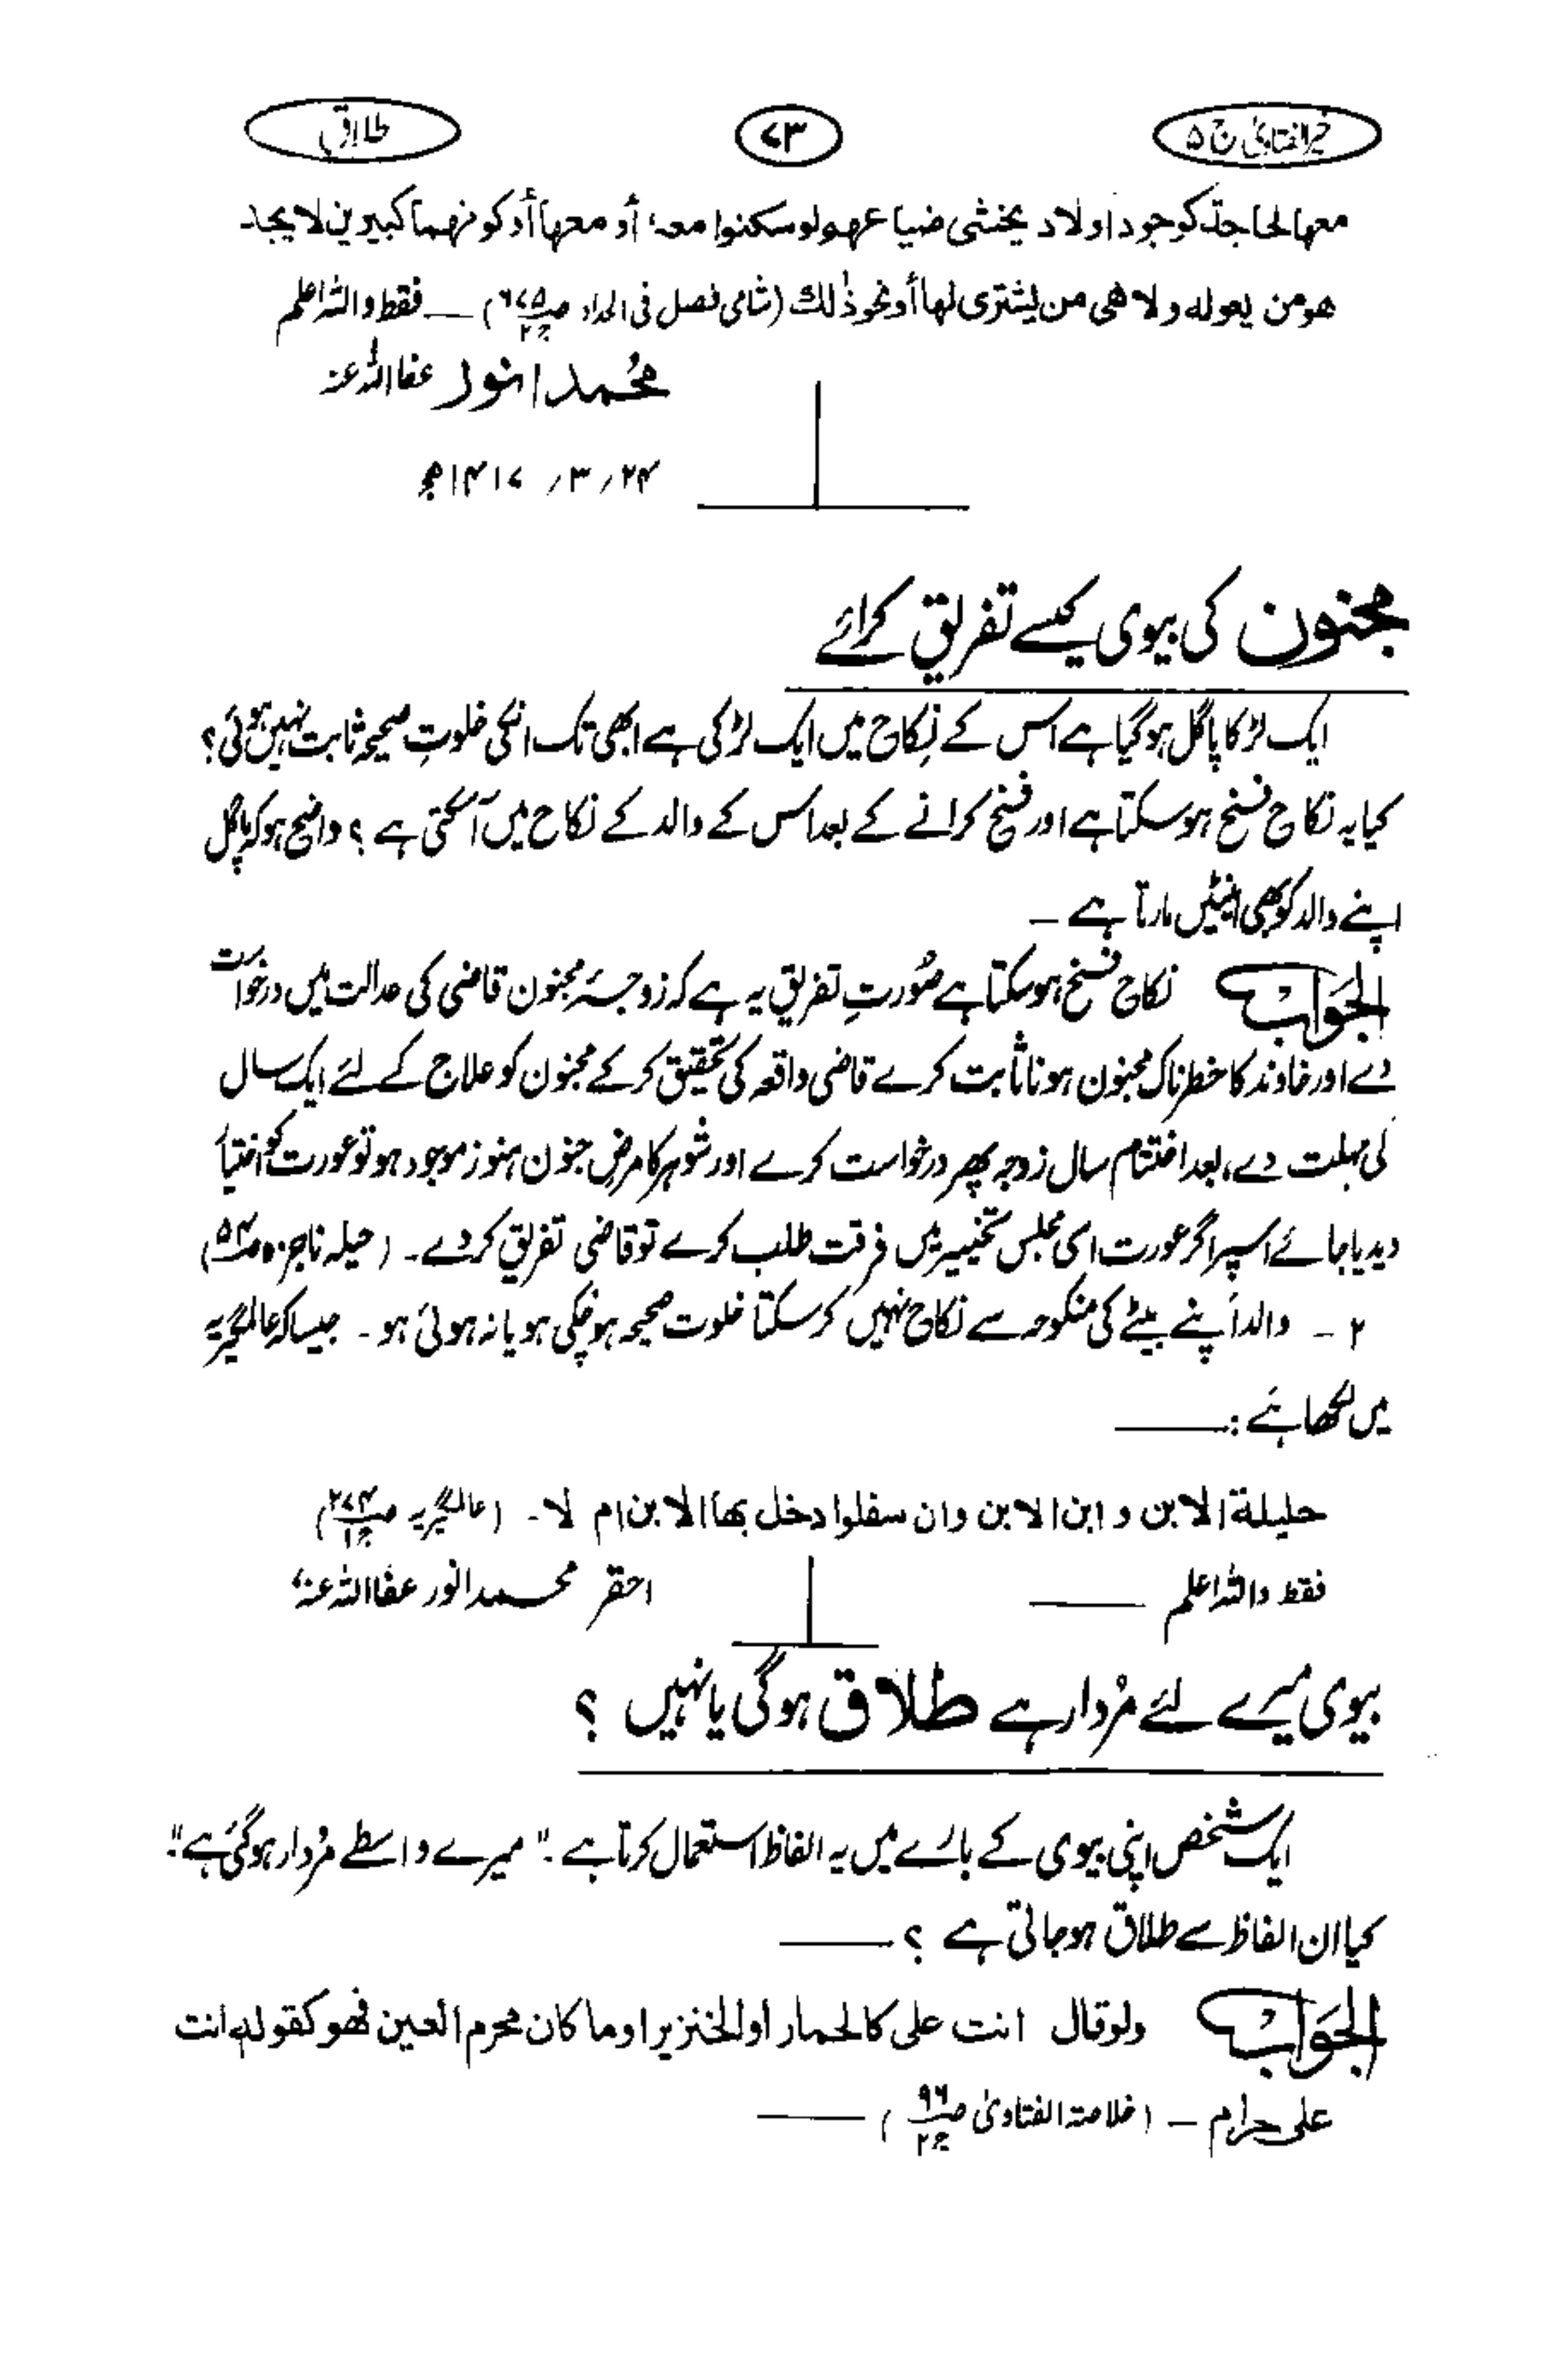 خیر الفتاویٰ ج ۵
۷۳
طلاق
معها لحاجة كوجود اولاد يخشى ضياعهم لو سكنوا معه أو معها أو كونهما كبيرين لا يجد
هو من يعوله ولا هی من یشتری لها أو نحو ذٰلك (شامی فصل فی الحداد ص۶۷۵ ج۲) — فقط واللہ اعلم
محمد انور عفا اللہ عنہ
۲۴؍۳؍۱۴۱۷ھ
مجنون کی بیوی کیسے تفریق کرائے
ایک لڑکا پاگل ہو گیا ہے اس کے نکاح میں ایک لڑکی ہے ابھی تک انکی خلوتِ صحیحہ ثابت نہیں ہوئی؟
کیا یہ نکاح فسخ ہو سکتا ہے اور فسخ کرانے کے بعد اس کے والد کے نکاح میں آ سکتی ہے؟ واضح ہو کہ پاگل
اپنے والد کو بھی اینٹیں مارتا ہے —
الجواب نکاح فسخ ہو سکتا ہے صُورتِ تفریق یہ ہے کہ زوجۂ مجنون قاضی کی عدالت میں درخواست
دے اور خاوند کا خطرناک مجنون ہونا ثابت کرے قاضی واقعہ کی تحقیق کر کے مجنون کو علاج کے لئے ایک سال
کی مہلت دے، بعد اختتام سال زوجہ پھر درخواست کرے اور شوہر کا مرض جنون ہنوز موجود ہو تو عورت کو اختیار
دیدیا جائے اسپر اگر عورت اسی مجلس تخییر میں فرقت طلب کرے تو قاضی تفریق کر دے۔ (حیلہ ناجزہ ص۵۴)
۲ - والد اَپنے بیٹے کی منکوحہ سے نکاح نہیں کر سکتا خلوت صحیحہ ہو چکی ہو یا نہ ہوئی ہو۔ جیسا کہ عالمگیریہ
میں لکھا ہے: ——
حليلة الابن و ابن الابن وان سفلوا دخل بها الابن ام لا۔ (عالمگیریہ ص۲۷۴ ج۱)
فقط واللہ اعلم —— احقر محمد انور عفا اللہ عنہ
بیوی میرے لئے مُردار ہے طلاق ہوگی یا نہیں؟
ایک شخص اپنی بیوی کے بارے میں یہ الفاظ استعمال کرتا ہے۔ "میرے واسطے مُردار ہو گئی ہے"
کیا ان الفاظ سے طلاق ہو جاتی ہے؟ ——
الجواب ولو قال انت علی كالحمار او الخنزير او ما كان محرم العين فهو كقوله انت
علی حرام — (خلاصۃ الفتاویٰ ص۹۶ ج۲) ——